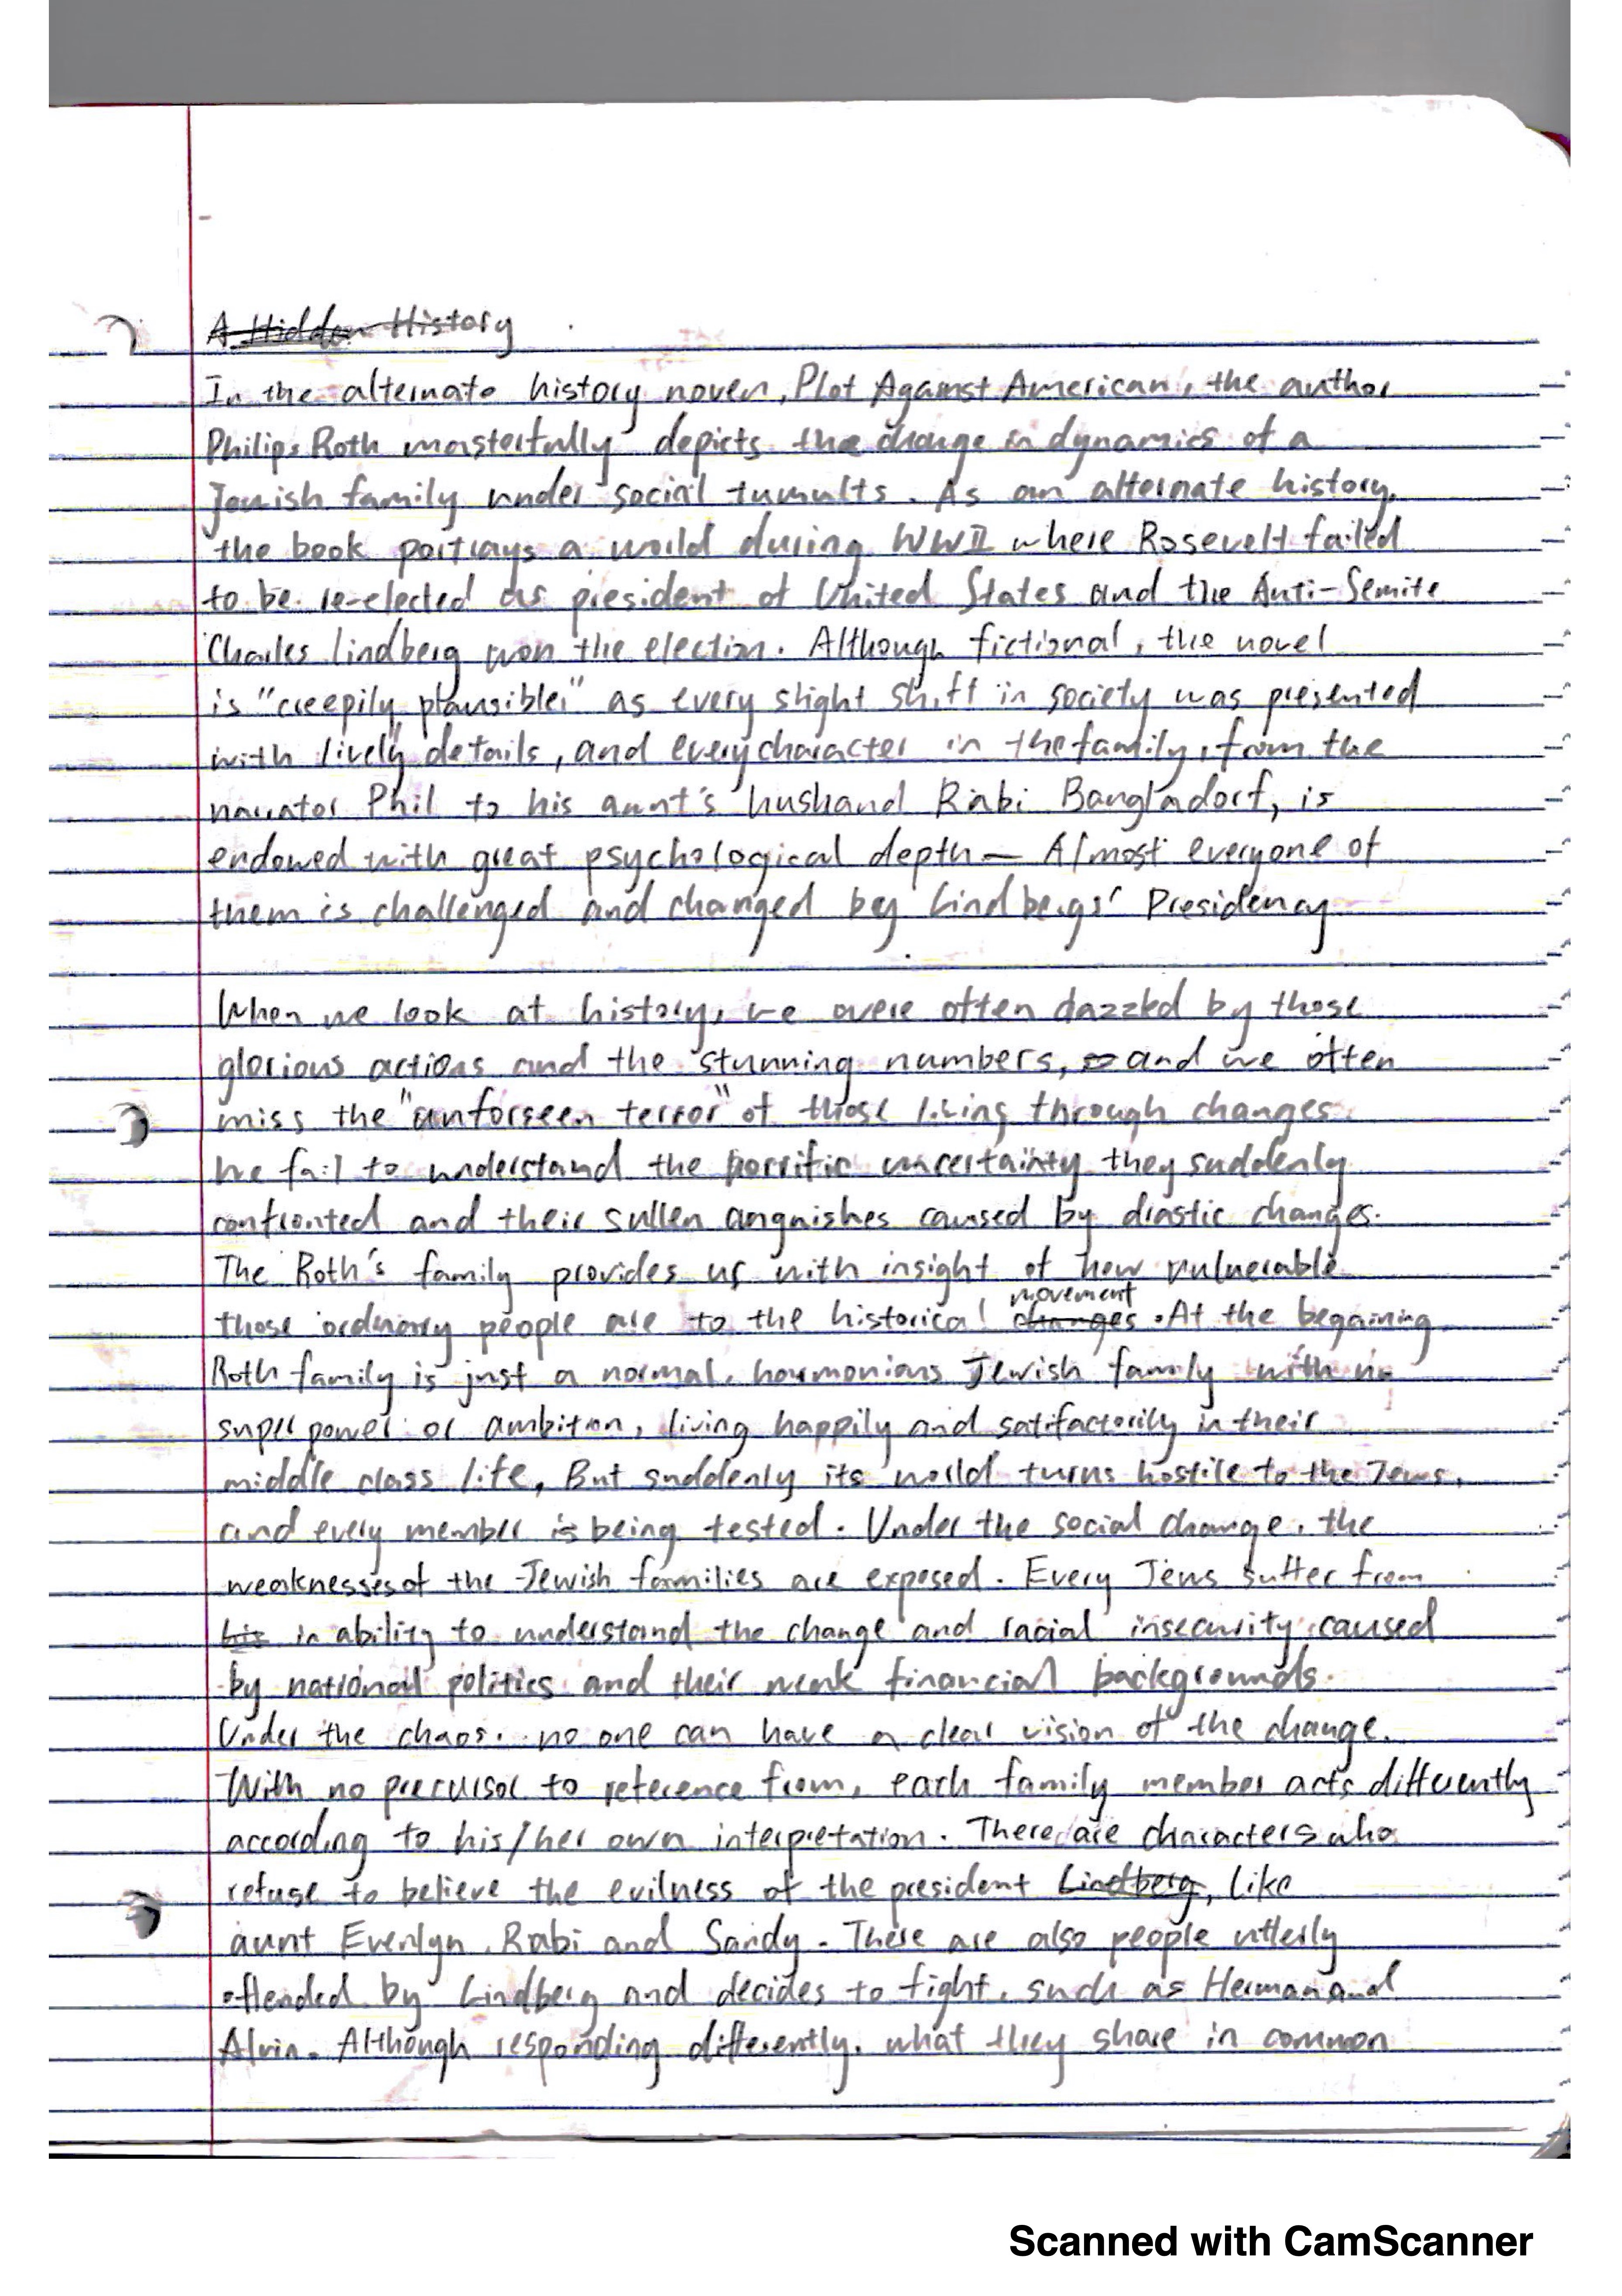 A Hidden History
In the alternate history noven, Plot Against American, the author
Philips Roth masterfully depicts the change in dynamics of a
Jewish family under social tumults. As an alternate history,
the book portrays a world during WWII where Rosevelt failed
to be re-elected as president of United States and the Anti-Semite
Charles Lindberg won the election. Although fictional, the novel
is "creepily plausible," as every slight shift in society was presented
with lively details, and every character in the family, from the
narrator Phil to his aunt's husband Rabi Bangladorf, is
endowed with great psychological depth — Almost everyone of
them is challenged and changed by Lindbergs' Presidency
When we look at history, we were often dazzled by those
glorious actions and the stunning numbers, and we often
miss the "unforseen terror" of those living through changes.
We fail to understand the horrific uncertainty they suddenly
confronted and their sullen anguishes caused by drastic changes.
The Roth's family provides us with insight of how vulnerable
those ordinary people are to the historical changes movement. At the begaining
Roth family is just a normal, harmonious Jewish family with no
super power or ambition, living happily and satifactorily in their
middle class life, But suddenly its world turns hostile to the Jews,
and every member is being tested. Under the social change, the
weaknesses of the Jewish families are exposed. Every Jews suffer from
his in ability to understand the change and racial insecurity caused
by national politics and their weak financial backgrounds.
Under the chaos, no one can have a clear vision of the change.
With no precursor to reference from, each family member acts differently
according to his/her own interpretation. There are characters who
refuse to believe the evilness of the president Lindberg, like
aunt Evenlyn, Rabi and Sandy. There are also people utterly
offended by Lindberg and decides to fight, such as Herman and
Alvin. Although responding differently, what they share in common
Scanned with CamScanner